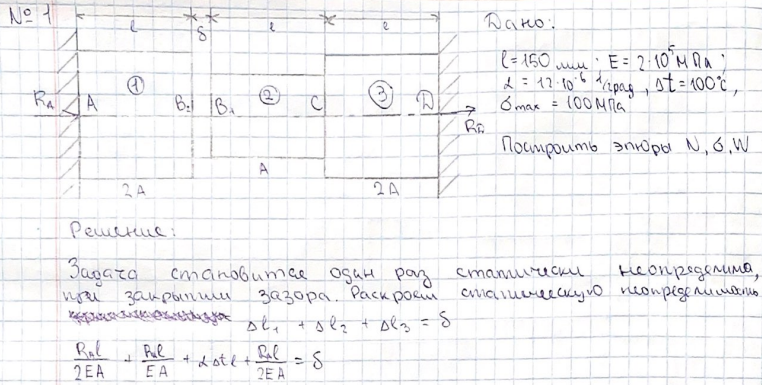 № 1
l δ l l
Дано:
l=150 мм; E = 2·10⁵ МПа;
α = 12·10⁻⁶ 1/град, Δt = 100°C,
σmax = 100 МПа
① ② ③
R_A A B₂ B₁ C D
R_D
A
2A 2A
Построить эпюры N, σ, W
Решение:
Задача становится один раз статически неопределима,
при закрытии зазора. Раскроем статическую неопределимость
Δl₁ + Δl₂ + Δl₃ = δ
R_A l/2EA + R_A l/EA + αΔtl + R_A l/2EA = δ